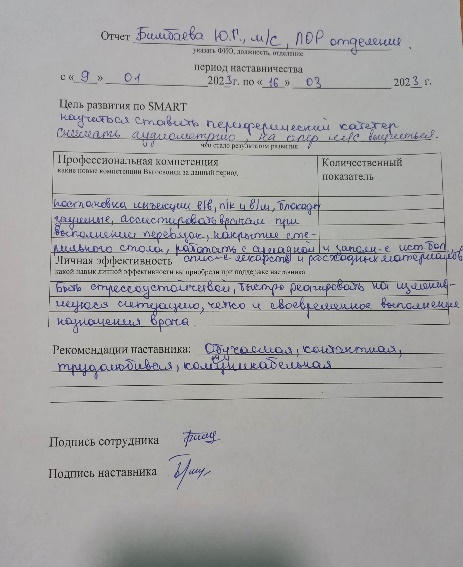 Отчет Бимбаева Ю.Г., м/с, ЛОР отделения.
указать ФИО, должность, отделение
период наставничества
с «9» 01 2023г. по «16» 03 2023 г.
Цель развития по SMART
научиться ставить периферический катетер
снимать аудиометрию. На опер м/с выучиться.
что стало результатом развития
Профессиональная компетенция
какие новые компетенции Вы освоили за данный период
Количественный показатель
постановка инъекции в/в, п/к и в/м,
ассистировать врачам при
выполнении перевязок, накрытие сте-
рильного стола, работать с и запол-е ист бол,
Личная эффективность
спис-е лекарств и расходных материалов
какой навык личной эффективности вы приобрели при поддержке наставника
быть стрессоустойчивой, быстро реагировать на изменив-
шуюся ситуацию, четко и своевременное выполнение
назначения врача.
Рекомендации наставника: Обучаемая, контактная,
трудолюбивая, коммуникабельная
Подпись сотрудника
Подпись наставника